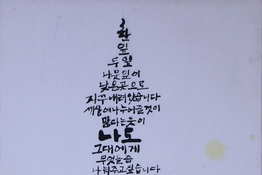 한
잎
두 잎
나뭇잎이
낮은곳으로
자꾸 내려 앉습니다
세상에 나누어줄것이
많다는듯이
나도
그대에게
무엇을좀
나눠주고싶습니다